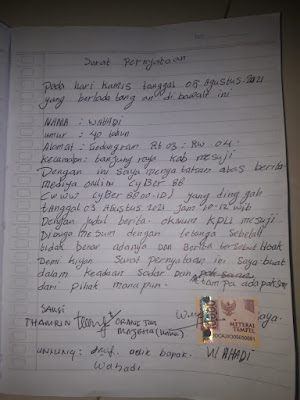 Surat Pernyataan
Pada hari kamis tanggal 05 Agustus 2021
yang bertada tang an di bawah ini
NAMA : WAHADI
umur : 40 tahun
Alamat : Gedungran Rt.03 ; Rw .04
kecamatan tanjung raya kab mesuji
Dengan ini saya menyatakan atas berita
Mediya onlini CyBer 88
(www CyBer 88.co.iD) yang ding gah
tanggal 03 Agustus 2021 Jam wib
Dengan Judul berita oknum KPLI mesuji
Diduga mesum dengan tetanga Sebelah
tidak benar adanya dan Berita tersebut Hoak
Demi kijan Surat pernyataan ini saya buat
dalam keadaan Sadar dan
tampa ada paksaan
dari pihak manapun
SAKSI
THAMRIN
ORANG TUA
saya.
METERAI
TEMPEL
adik bapak
WAHADI
Wahadi